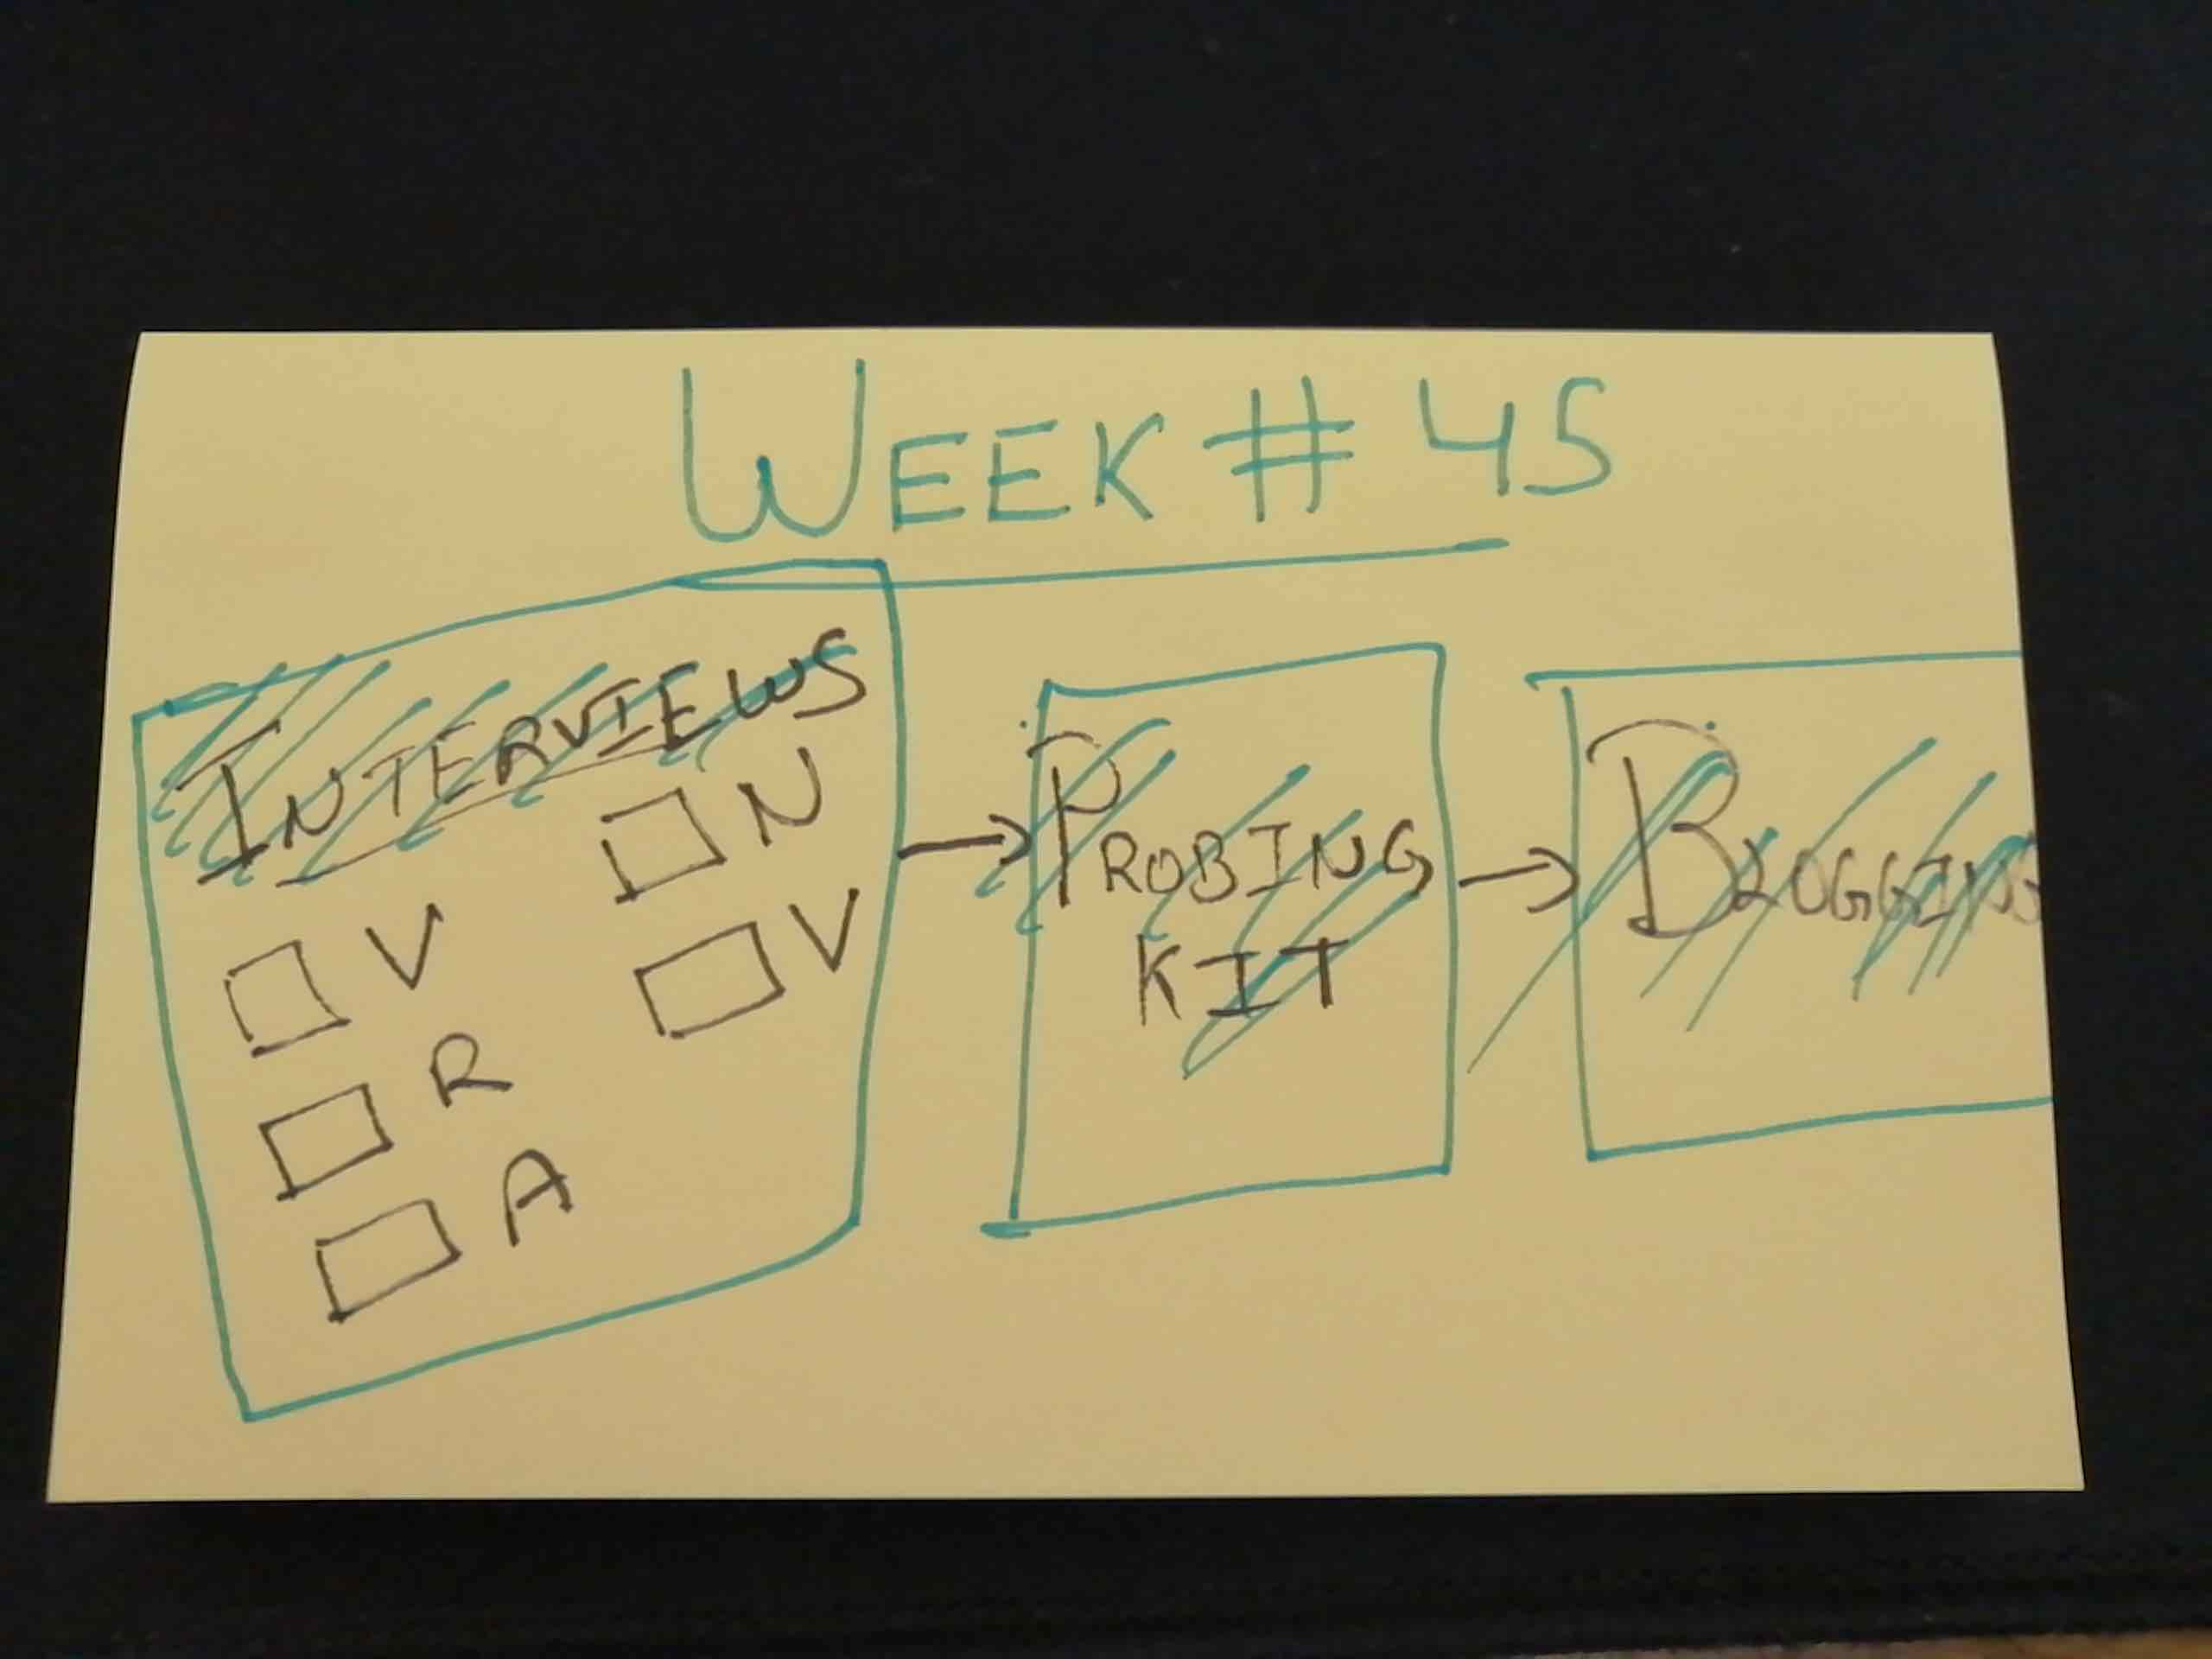 WEEK # 45
INTERVIEWS
☐ N
☐ V
☐ V
☐ R
☐ A
PROBING
KIT
BLOGGING